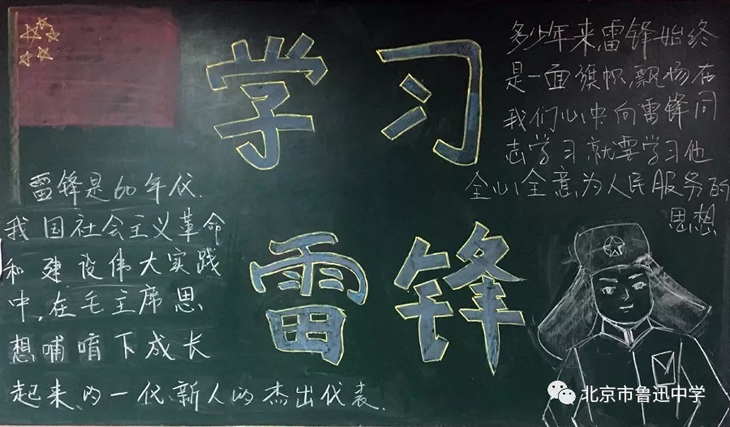 学习
雷锋
雷锋是60年代
我国社会主义革命
和建设伟大实践
中,在毛主席思
想哺育下成长
起来的一代新人的杰出代表.
多少年来雷锋始终
是一面旗帜,飘扬在
我们心中向雷锋同
志学习就要学习他
全心全意为人民服务的
思想
北京市鲁迅中学